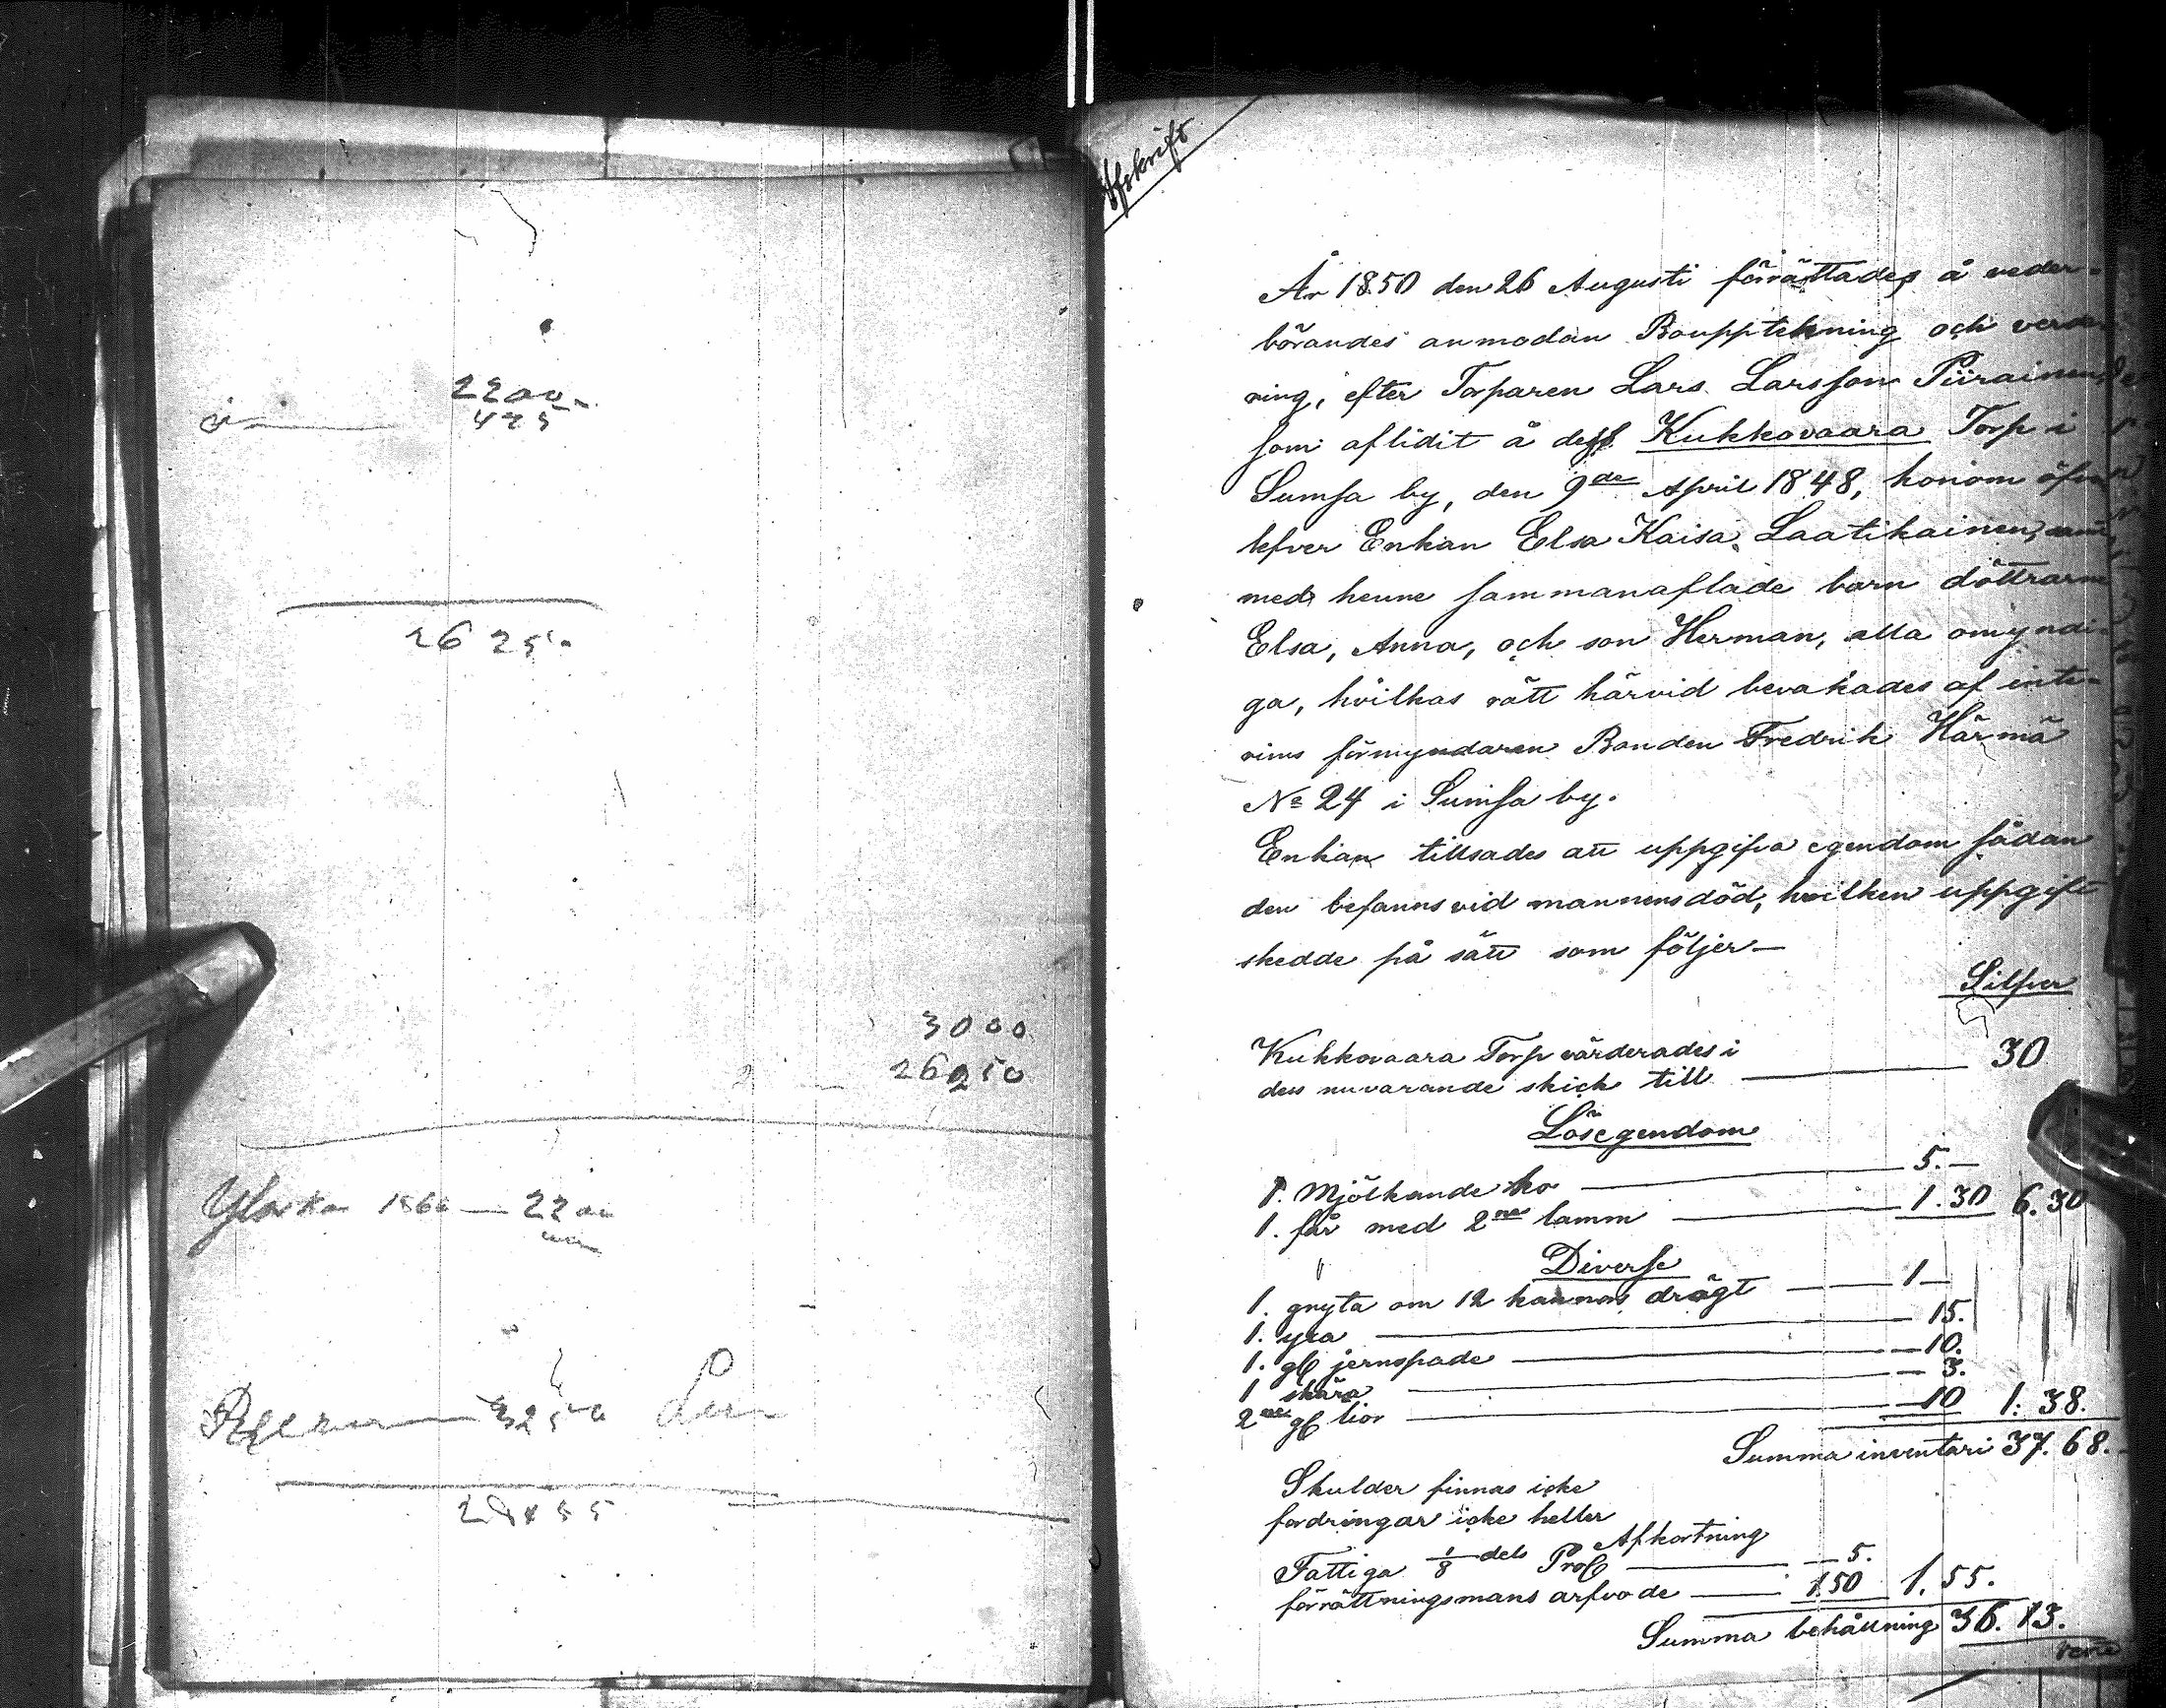 2200
425
2625
3000
26250
1866 — 22
Afskrift
År 1850 den 26 Augusti förrättades å veder-
börandes anmodan Boupptekning och verde
ring, efter Torparen Lars Larsson Piirainen,
som aflidit å dess Kukkovaara Torp i
Sumsa by, den 9de April 1848, honom öfver
lefver Enkan Elsa Kaisa Laatikainen, samt
med henne sammanaflade barn döttrarne
Elsa, Anna, och son Herman, alla omyndi-
ga, hvilkas rätt härvid bevakades af inte-
rims förmyndaren Bonden Fredrik Härmä
No 24 i Sumsa by.
Enkan tillsades att uppgifva egendom sådan
den befanns vid mannens död, hvilken uppgift
skedde på sätt som följer —
Silfver
Kukkovaara Torp värderades i
dess nuvarande skick till — 30
Lösegendom
1. Mjölkande ko — 5.—
1. får med 2ne lamm — 1.30 6.30
Diverse
1. gryta om 12 kannors drägt — 1—
1. yxa — 15.
1. gl jernspade — 10.
1 skära — 3.
2ne gl lior — 10 1: 38.
Summa inventari 37. 68.
Skulder finnas icke
fordringar icke heller
Afkortning
Fattiga 1/8 dels Proc — 5.
förrättningsmans arfvode — 1.50 1. 55.
Summa behållning 36. 13.